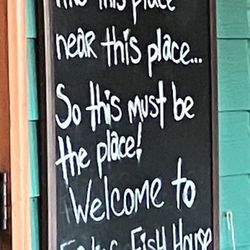 this place
near this place...
So this must be
the place!
Welcome to
Fish House